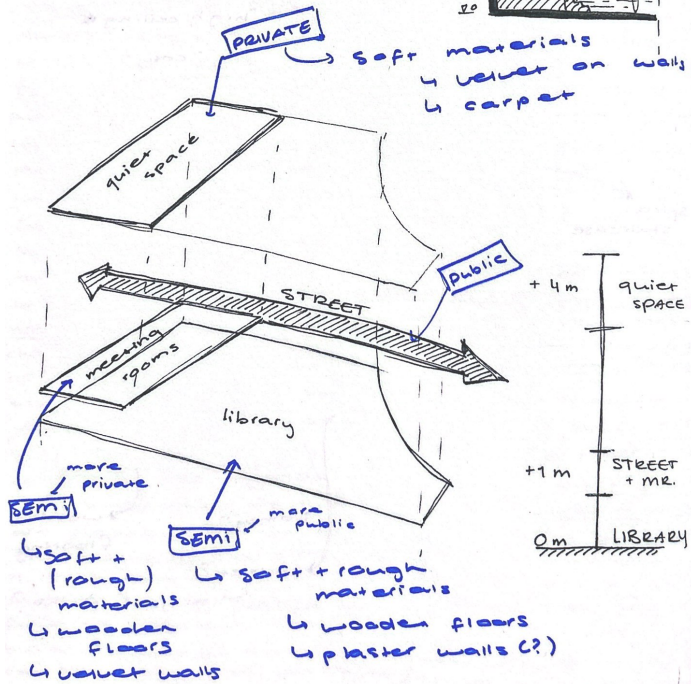 PRIVATE
soft materials
↳ velvet on walls
↳ carpet
quiet
space
public
STREET
meeting
rooms
library
+ 4 m
quiet
SPACE
+1 m
STREET
+ MR.
0 m
LIBRARY
more
private
SEMI
↳ soft +
(rough)
materials
↳ wooden
floors
↳ velvet walls
more
public
SEMI
↳ soft + rough
materials
↳ wooden floors
↳ plaster walls (?)